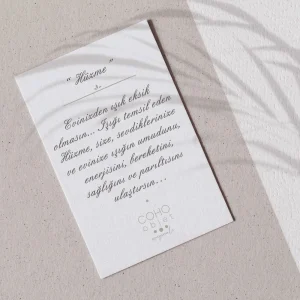 " Hüzme "
Evinizden ışık eksik
olmasın... Işığı temsil eden
Hüzme, size, sevdiklerinize
ve evinize ışığın umudunu,
enerjisini, bereketini,
sağlığını ve parıltısını
ulaştırsın...
COHO